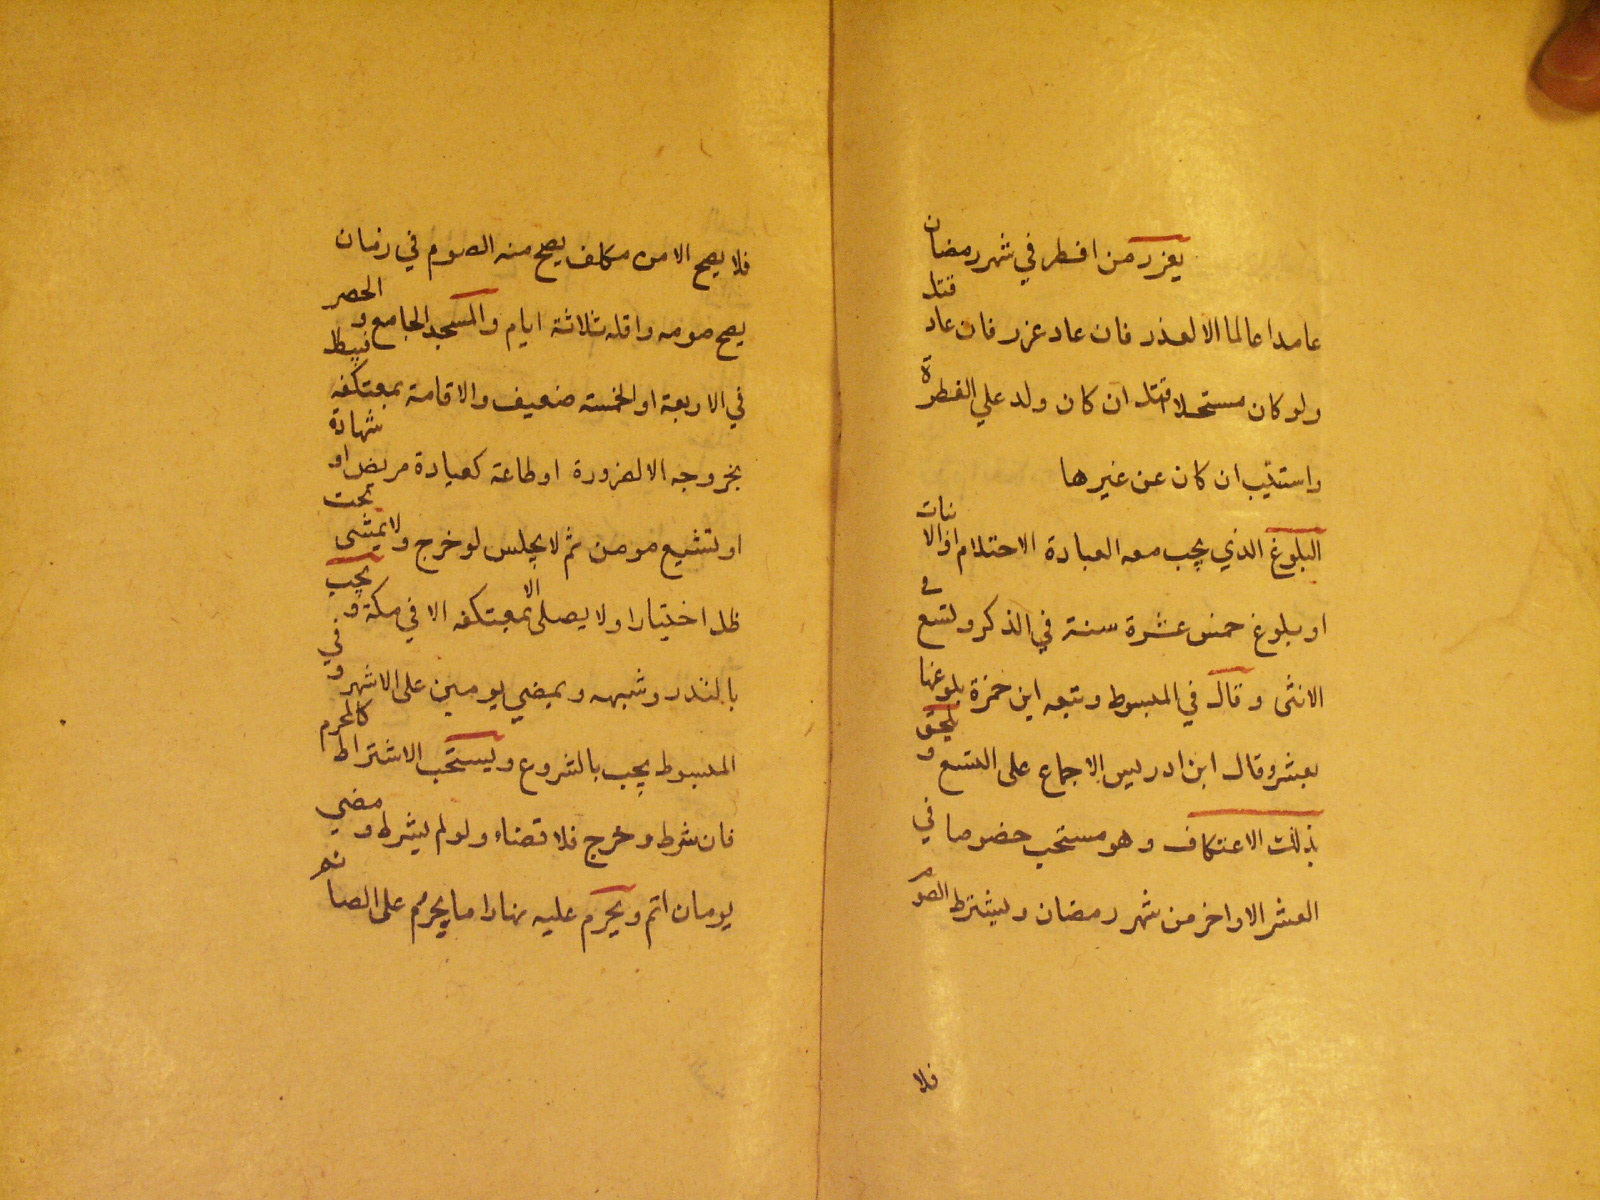 يعزر من افطر في شهر رمضان
عامدا عالما الا لعذر فان عاد عزر فان عاد قتل
ولو كان مستحلا قتل ان كان ولد علي الفطرة
واستتيب ان كان عن غيرها
البلوغ الذي يجب معه العبادة الاحتلام او الانبات
او بلوغ خمس عشرة سنة في الذكر وتسع في
الانثى وقال في المبسوط وتبعه ابن حمزة بلوغها
بعشر وقال ابن ادريس الاجماع على التسع ويلحق
بذلك الاعتكاف وهو مستحب خصوصا في
العشر الاواخر من شهر رمضان ويشترط الصوم
فلا
فلا يصح الا من مكلف يصح منه الصوم في زمان
يصح صومه واقله ثلاثة ايام والمسجد الجامع والحصر
في الاربعة او الخمسة ضعيف والاقامة بمعتكفه فيبطل
بخروجه الا لضرورة او طاعة كعيادة مريض او شهادة
او تشييع مومن ثم لا يجلس لو خرج ولا يمشى تحت
ظل اختيارا ولا يصلى الا بمعتكفه الا في مكة ويجب
بالنذر وشبهه وبمضي يومين على الاشهر وفي
المبسوط يجب بالشروع ويستحب الاشتراط كالمحرم
فان شرط وخرج فلا قضاء ولو لم يشرط ومضي
يومان اتم ويحرم عليه نهارا ما يحرم على الصائم